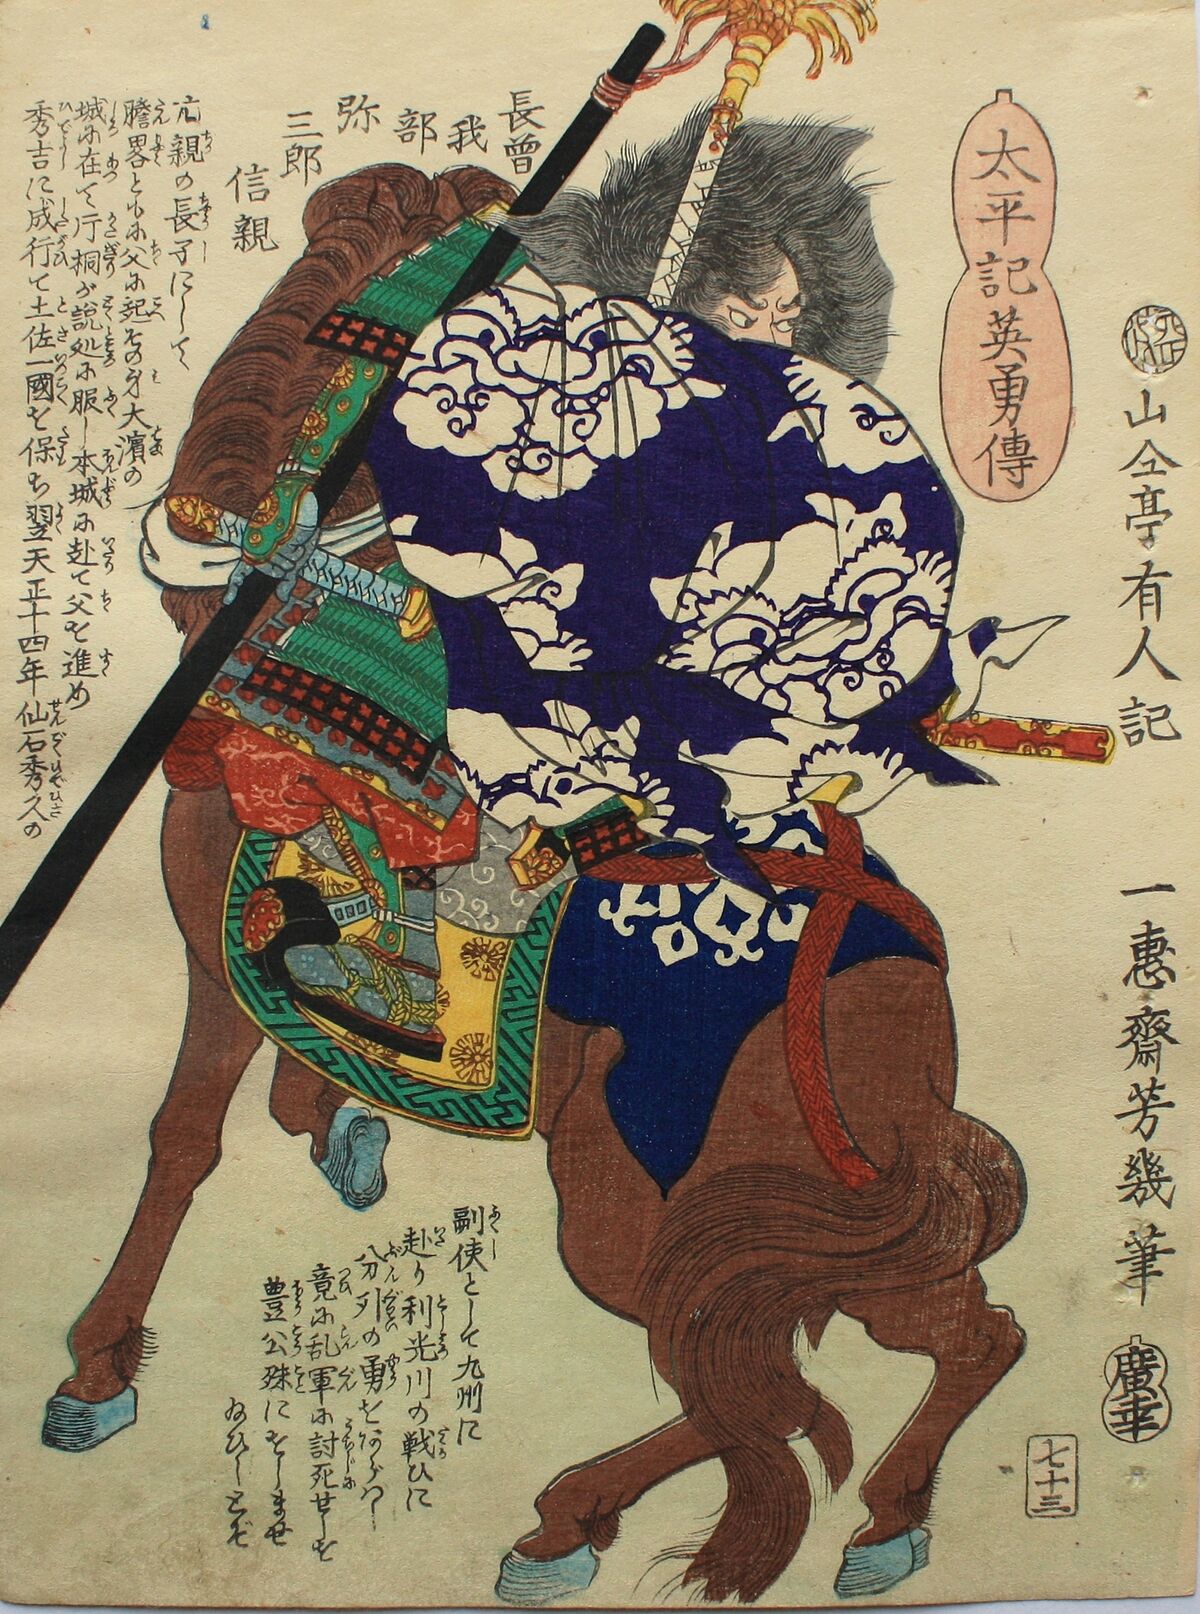 太平記英勇傳
山々亭有人記
一惠齋芳幾筆
廣幸
七十三
長曾
我
部
弥
三郎
信親
元親の長子にして
膽畧ともに父に起その身大濱の
城に在て片桐が説処に服し本城に赴て父を進め
秀吉に成行て土佐一國を保ち翌天正十四年仙石秀久の
副使として九州に
赴り利光川の戦ひに
竟に乱軍に討死せしを
豊公殊にをしませ